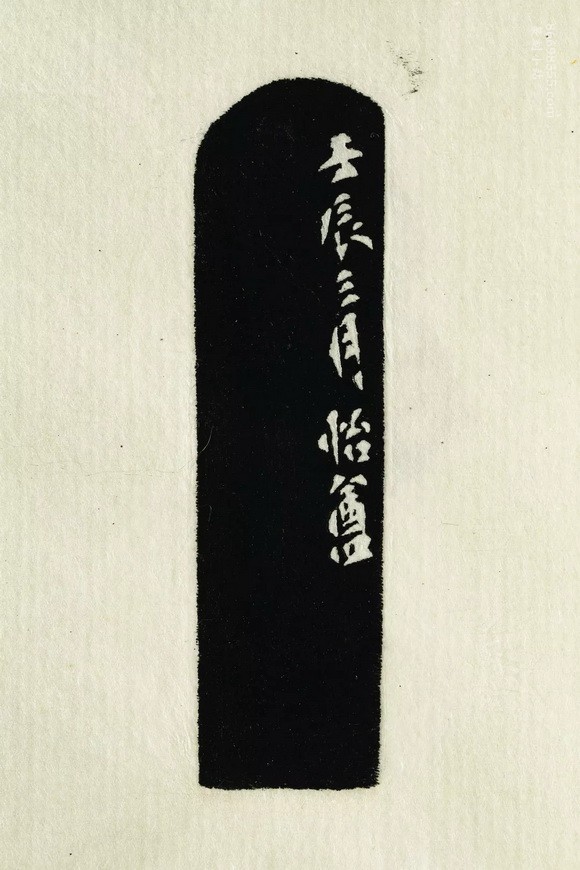 壬辰三月、怡盦